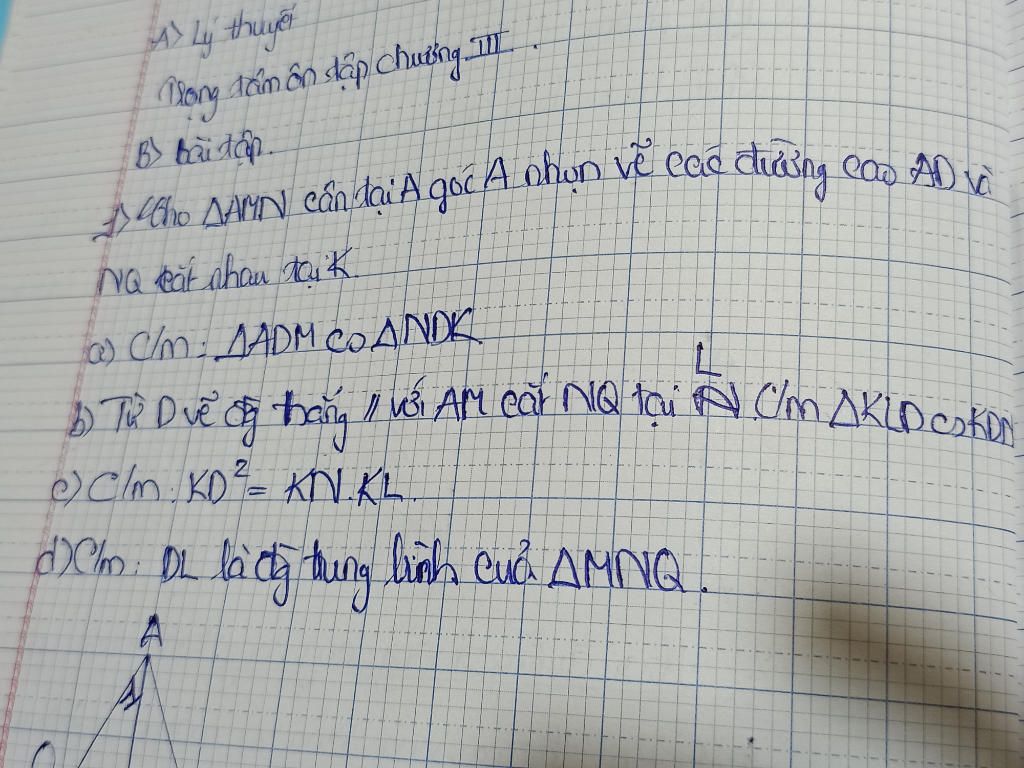 A> Lý thuyết
Trọng tâm ôn tập chương III.
B> bài tập.
1> Cho ΔAMN cân tại A góc A nhọn vẽ các đường cao AD và
NQ cắt nhau tại K
a) C/m: ΔADM ∽ ΔNDK
b) Từ D vẽ đg thẳng // với AM cắt NQ tại L C/m ΔKLD ∽ KDN
c) C/m: KD² = KN.KL.
d) C/m: DL là đg trung bình cuả ΔMNQ.
A
1
Q